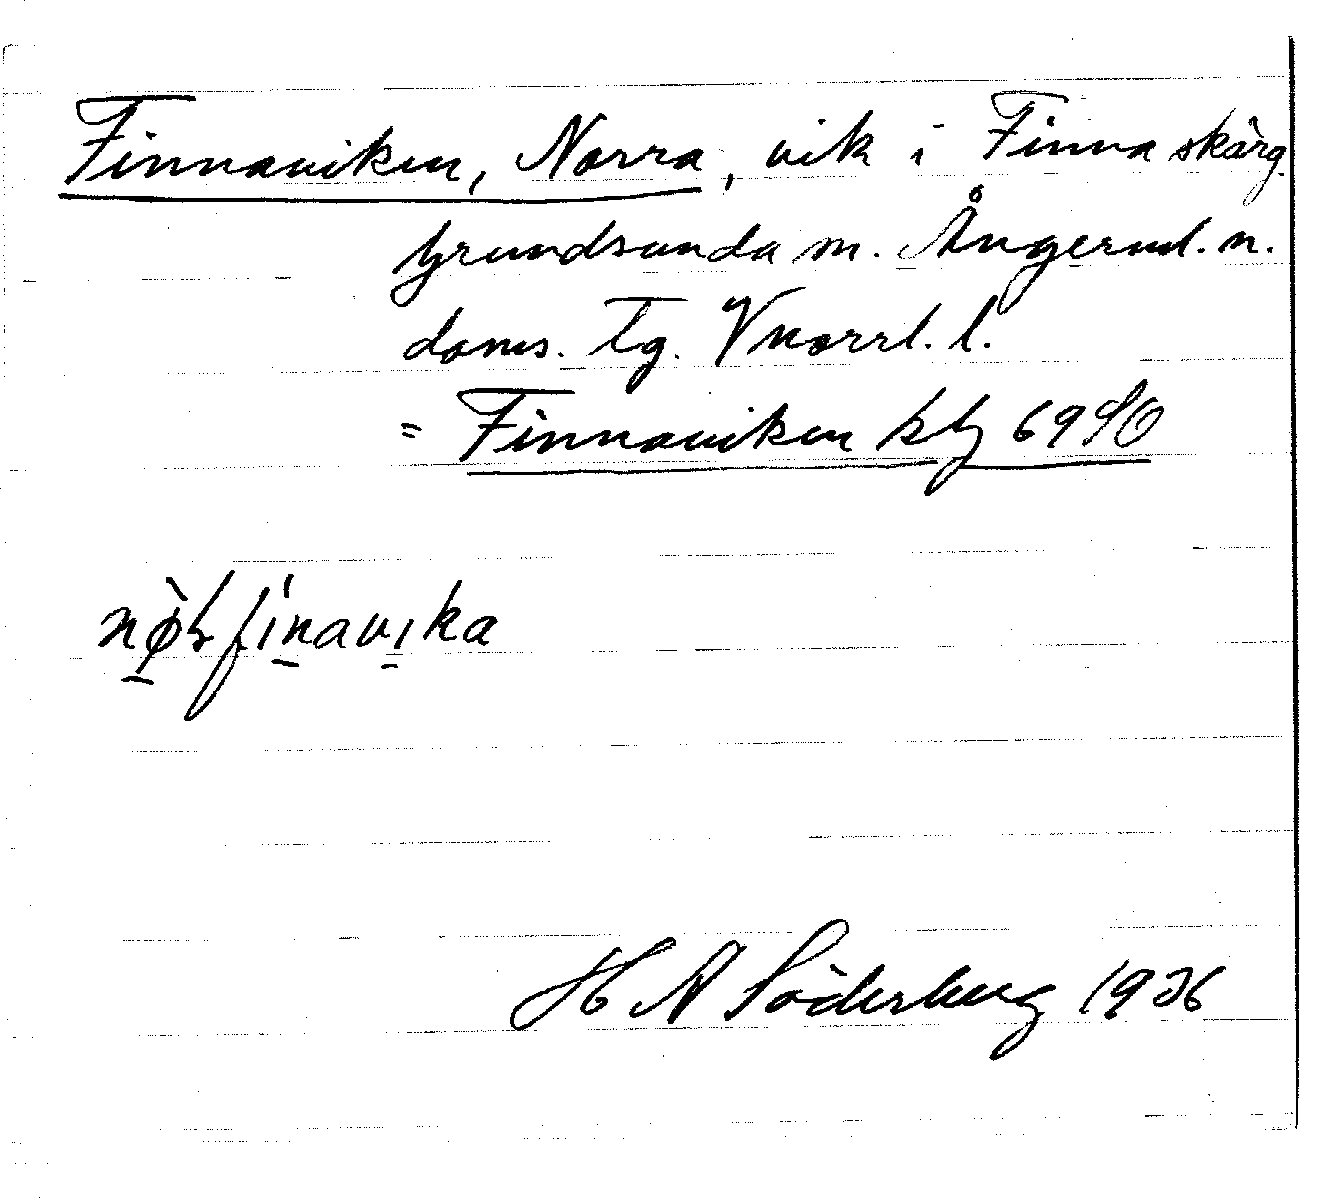 Finnaviken, Norra, vik i Finna skärg.
Grundsunda sn. Ångerml. n.
doms. Tg. Vnorrl. l.
= Finnaviken kbg 69 SO
H N Söderberg 1936